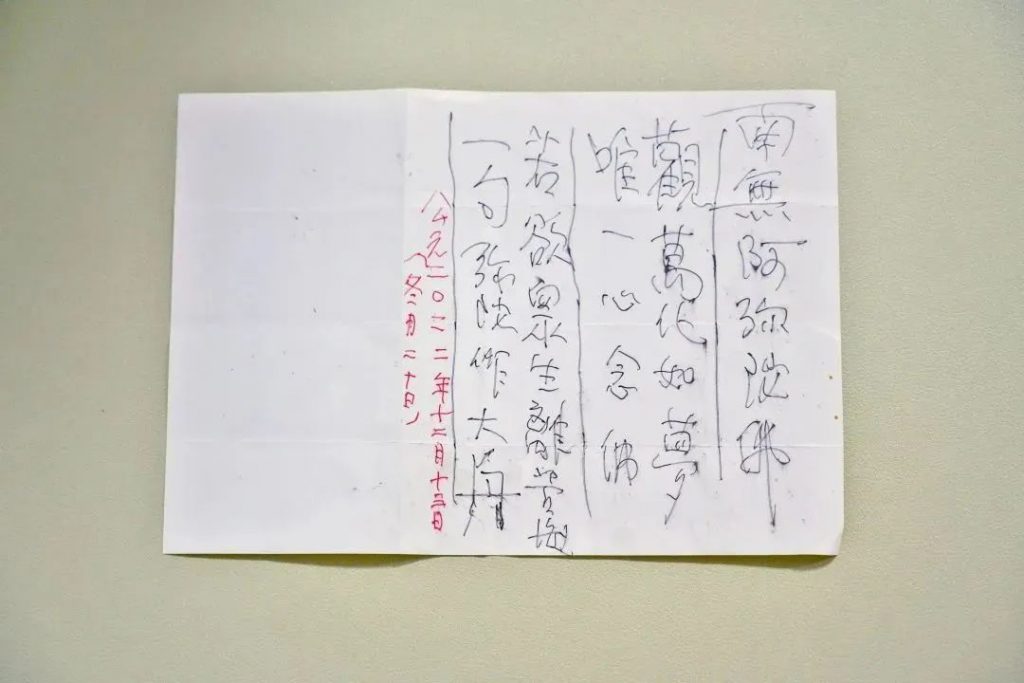 南無阿弥陀佛
觀萬化如夢
唯一心念佛
若欲眾生離苦海
一句弥陀作大舟
公元二〇二二年十二月十三日
(冬月二十日)